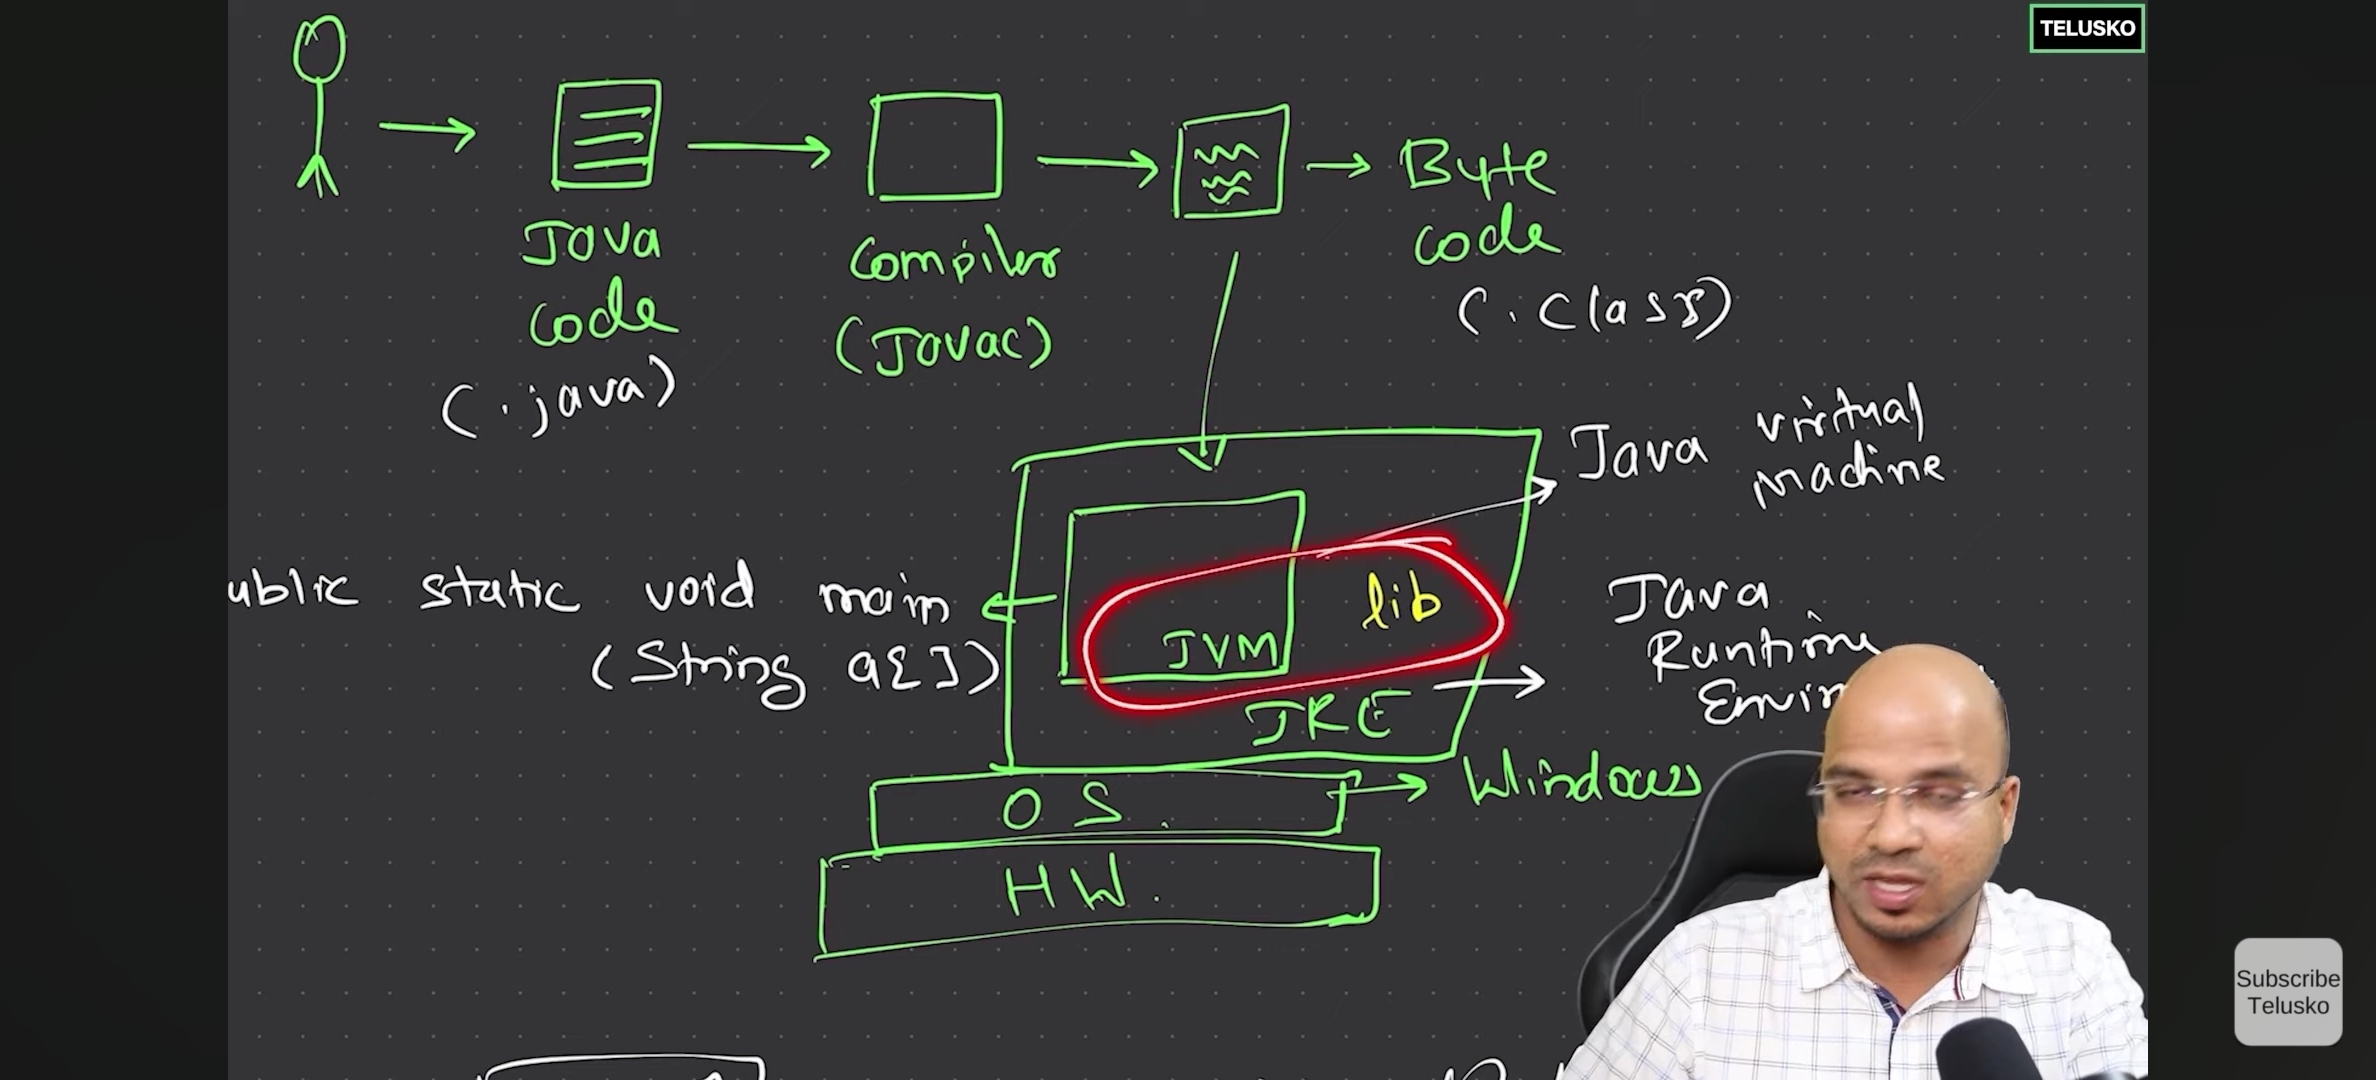 TELUSKO
Java
code
(.java)
Compiler
(Javac)
Byte
code
(.class)
Java virtual
machine
ublic static void main
(String a[])
lib
JVM
JRE
Java
Runtime
OS.
Windows
HW.
Subscribe
Telusko